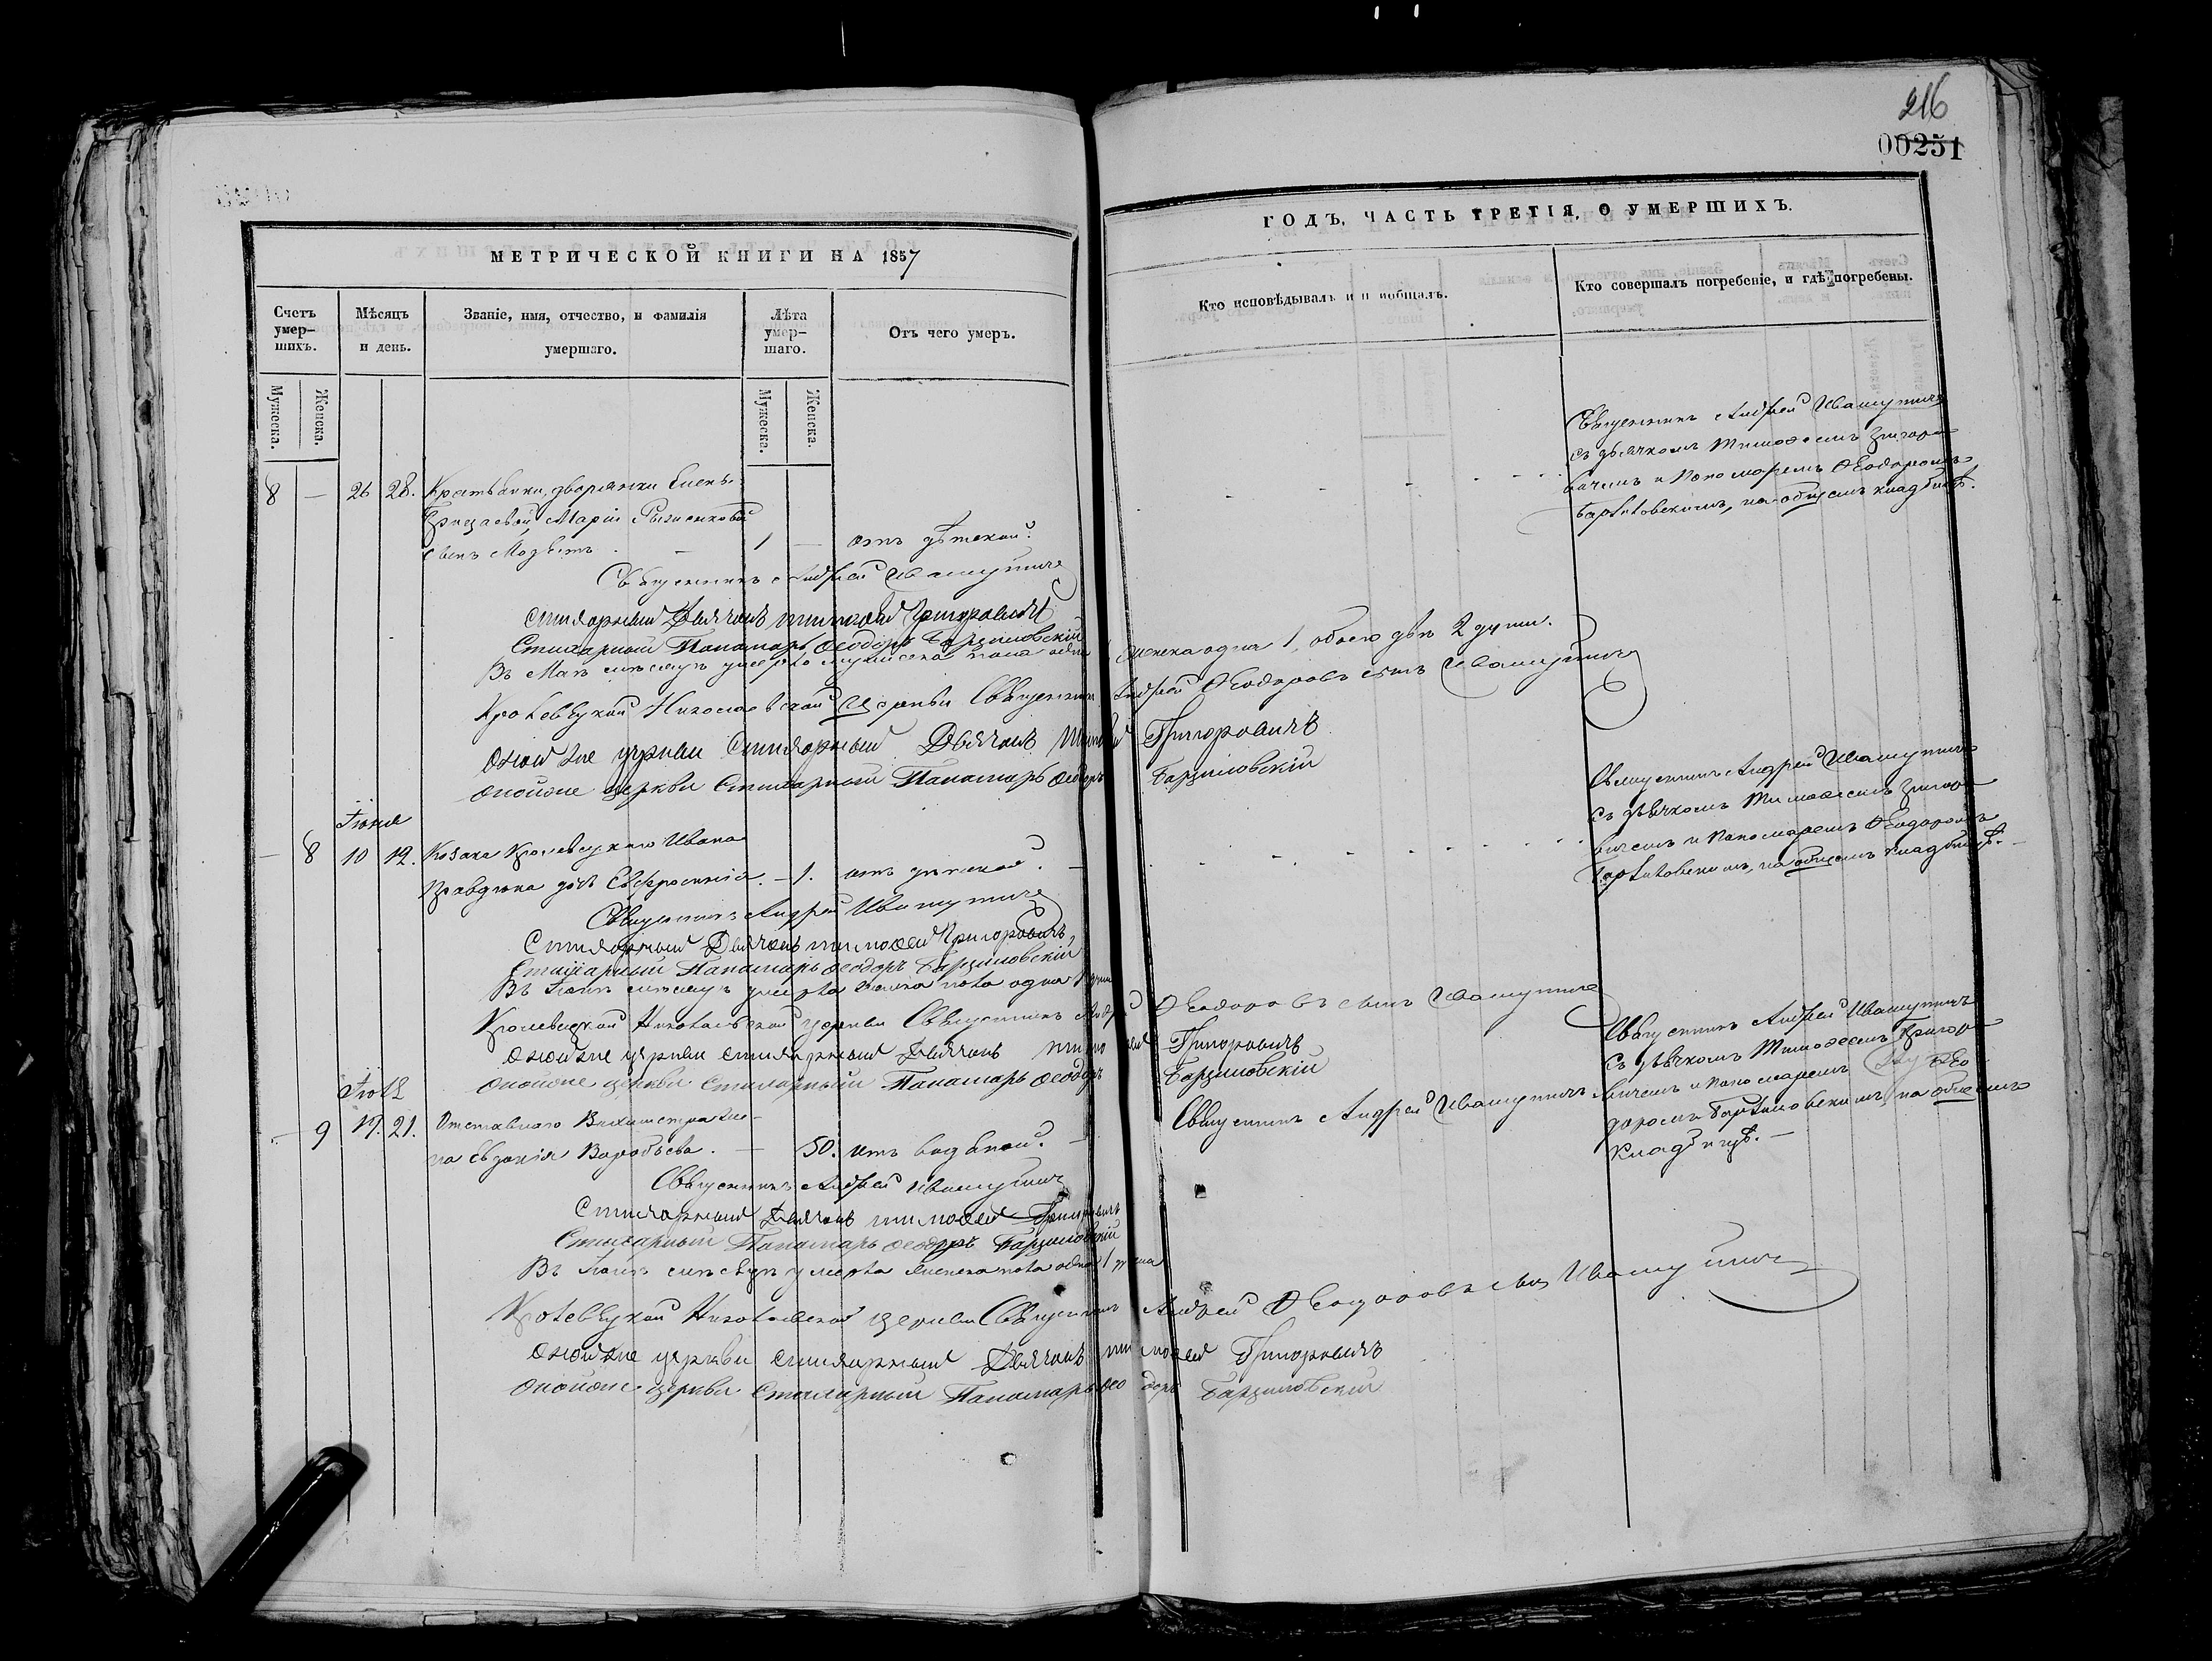 216
00251
МЕТРИЧЕСКОЙ КНИГИ НА 1857
Счетъ умер-
шихъ.
Мѣсяцъ
и день.
Званіе, имя, отчество, и фамилія
умершаго.
Лѣта
умер-
шаго.
Отъ чего умеръ.
Мужеска.
Женска.
Мужеска.
Женска.
8 — 26 28. Крестьянки, дворянки Елены
Маріи
сынъ Модестъ. — 1 — отъ дѣтской.
Священникъ Андрей Ивашутичь
Стихарный Дьячокъ Тимофей Григоровичъ
Стихарный Панамарь Феодоръ Барзиловскій
Въ Маѣ мѣсяцѣ умерло мужеска пола одна
Кролевецкой Николаевской Церкви Священникъ
Оной же церкви Стихарный Дьячокъ Тимофей
Оной же церкви Стихарный Панамарь Феодоръ
Іюня
— 8 10 12. Козака Кролевецкаго Ивана
Правдюка дочь Евфросинія. — 1. отъ дѣтской. —
Священникъ Андрей Ивашутичь
Стихарный Дьячокъ Тимофей Григоровичъ
Стихарный Панамарь Феодоръ Барзиловскій
Въ Іюнѣ мѣсяцѣ умерла женска пола одна 1 душа
Кролевецкой Николаевской церкви Священникъ Андрей
Оной же церкви стихарный Дьячокъ Тимофей
Оной же церкви Стихарный Панамарь Феодоръ
Іюль
— 9 19. 21. Отставнаго Вахмистра
Евдокія Воробьева. — 50. отъ водяной. —
Священникъ Андрей Ивашутичь
Стихарный Дьячокъ Тимофей Григоровичъ
Стихарный Панамарь Феодоръ Барзиловскій
Въ мѣсяцѣ умерла женска пола одна 1 душа
Кролевецкой Николаевской церкви Священникъ
Оной же церкви стихарный Дьячокъ Тимофей
Оной же церкви Стихарный Панамарь Феодоръ
ГОДЪ, ЧАСТЬ ТРЕТІЯ, О УМЕРШИХЪ.
Кто исповѣдывалъ и п іобщалъ.
Кто совершалъ погребеніе, и гдѣ погребены.
Священникъ Андрей Ивашутичь
съ дьячкомъ Тимофеемъ Григоро-
вичемъ и Пономаремъ Феодоромъ
Барзиловскимъ, на общемъ кладбищѣ.
женска одна 1, обоего два 2 души.
Андрей Феодоровъ сынъ Ивашутичь
Григоровичъ
Барзиловскій
Священникъ Андрей Ивашутичь
съ дьячкомъ Тимофеемъ Григоро-
вичемъ и Пономаремъ Феодоромъ
Барзиловскимъ, на общемъ кладбищѣ. —
Феодоровъ сынъ Ивашутичь
Григоровичъ
Барзиловскій
Священникъ Андрей Ивашутичъ
Священникъ Андрей Ивашутичь
съ дьячкомъ Тимофеемъ Григоро-
вичемъ и Пономаремъ Фео
доромъ Барзиловскимъ, на общемъ
кладбищѣ. —
Андрей Феодоровъ сынъ Ивашутичь
Григоровичъ
Барзиловскій